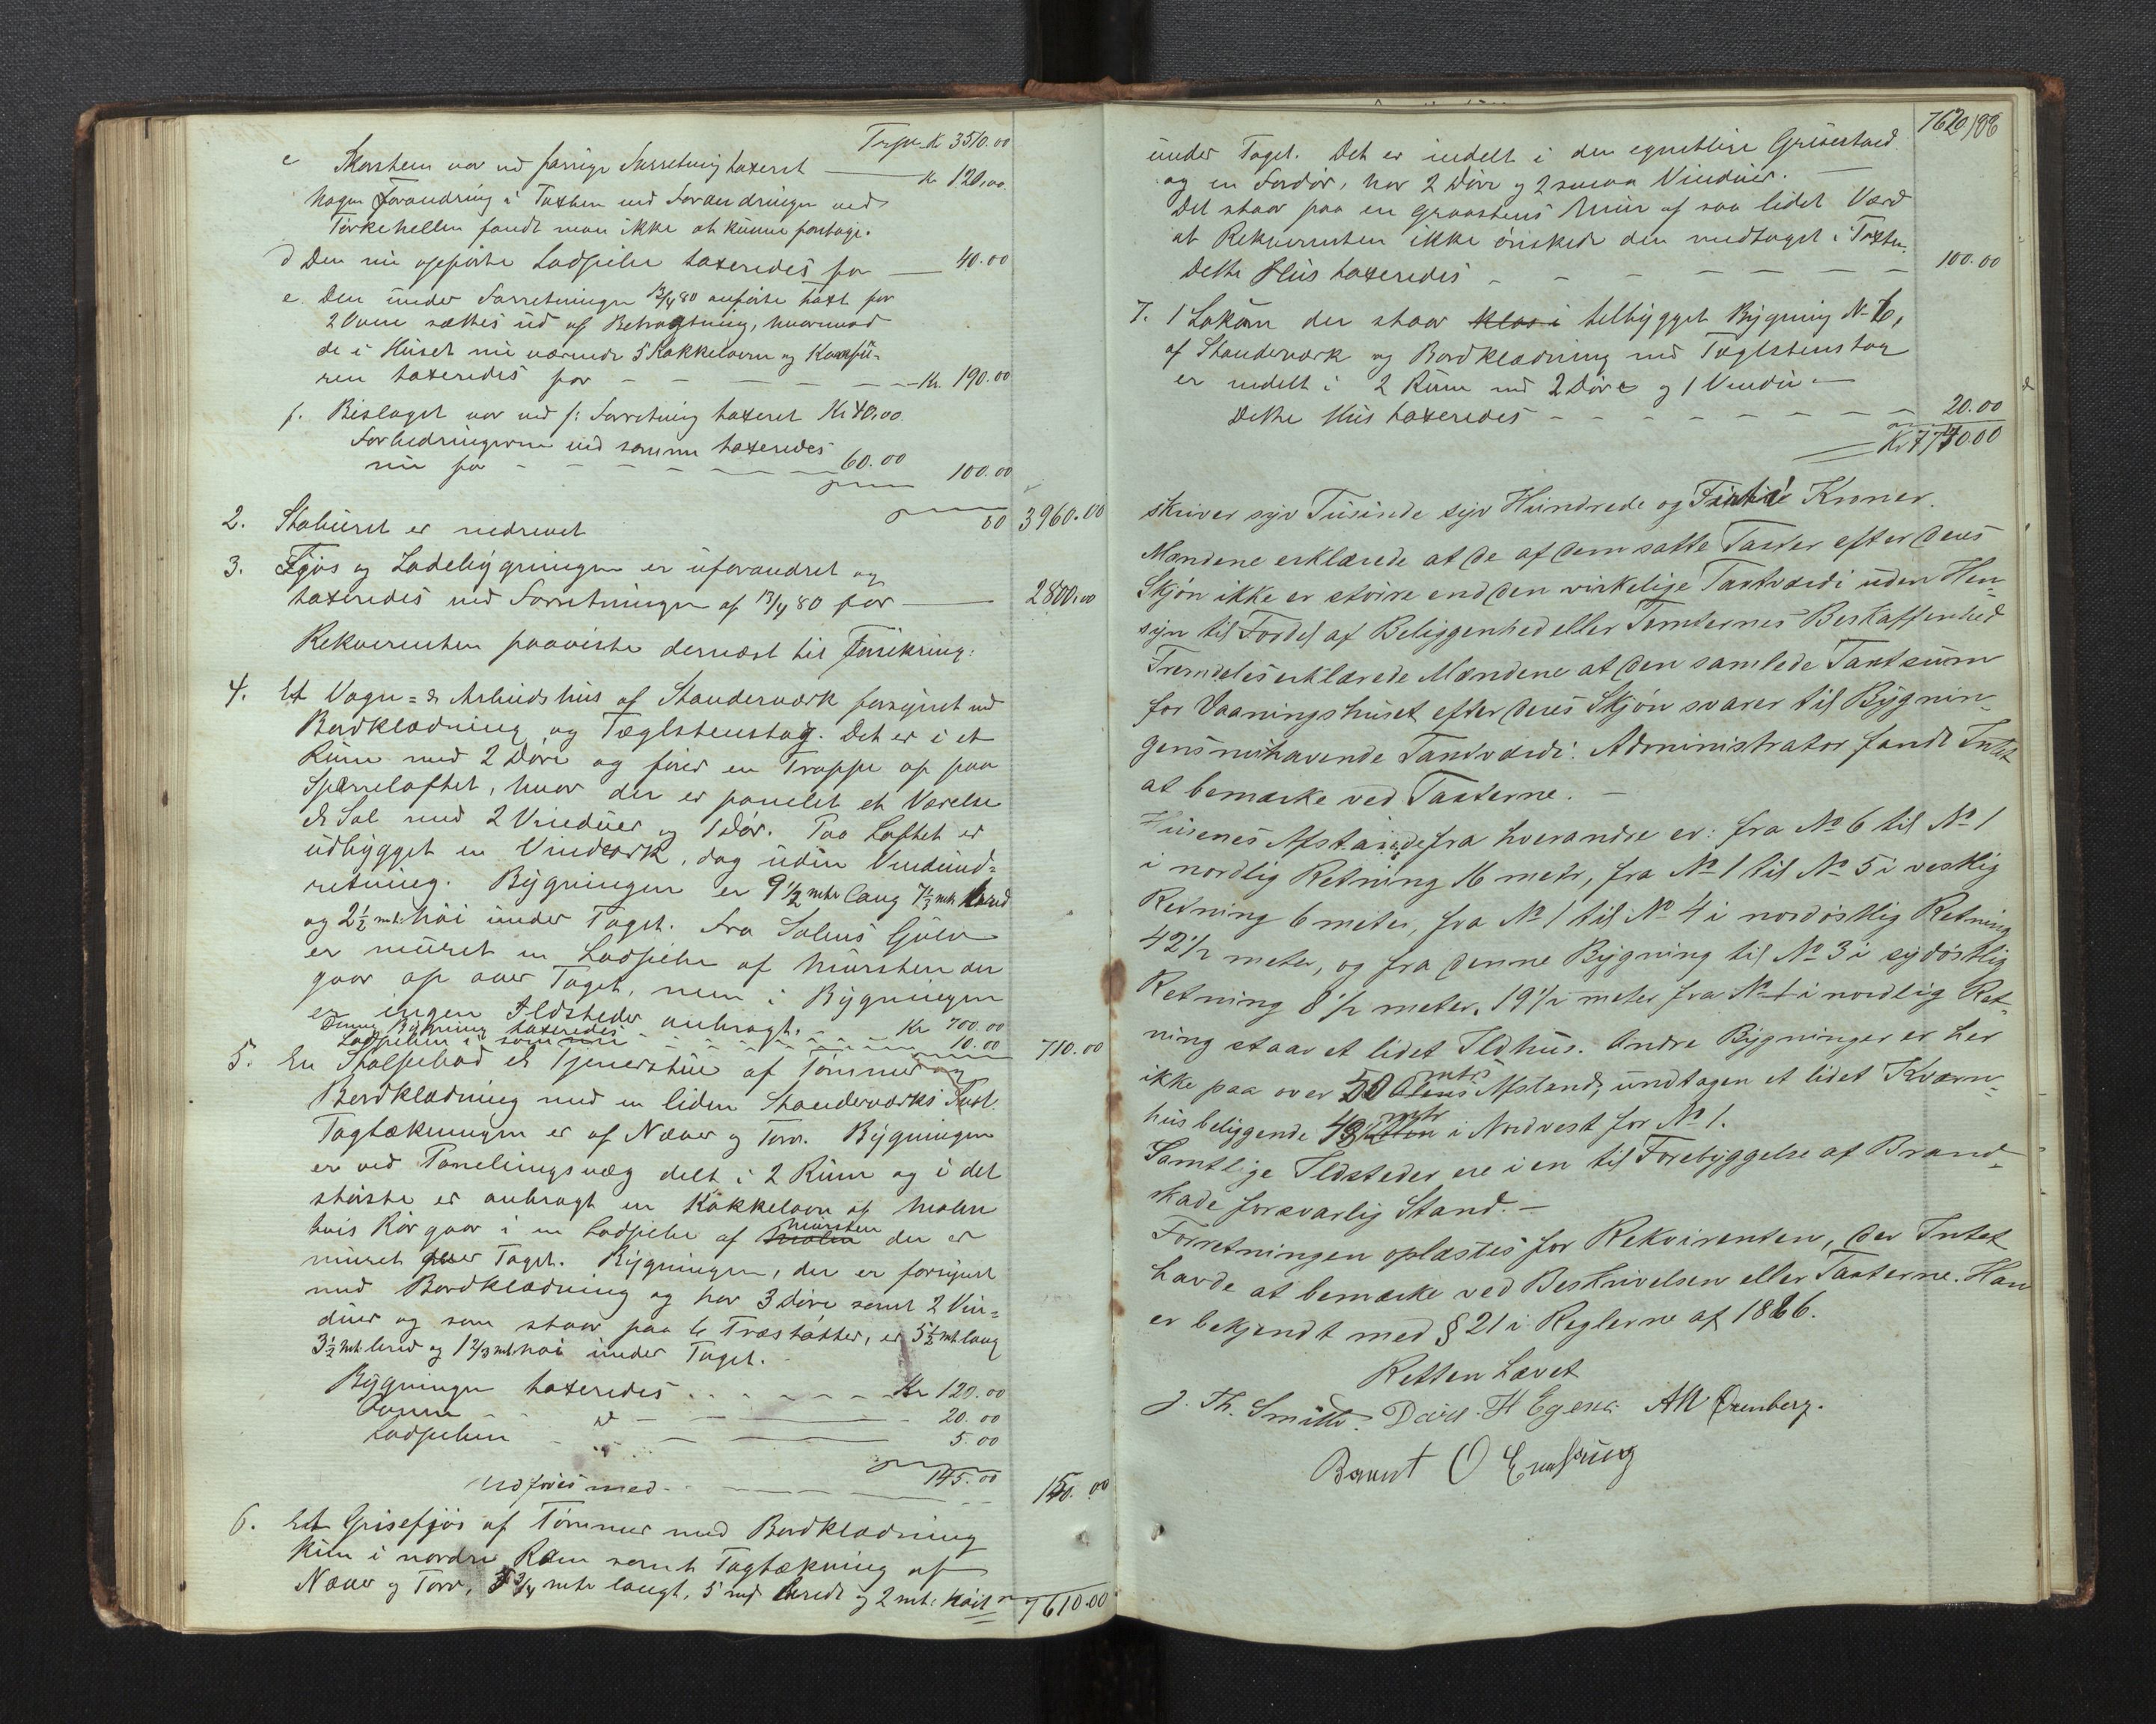 Trsp. K 3510.00
c Skorsten var ved forrige Forretning taxeret — Kr 120.00.
Nogen Forandring i Taxten ved Forandringen ved
Tørkehellen fandt man ikke at kunne foretage.
d Den nu opførte Ladpibe taxeredes for — 40.00
e. Den under Forretningen 13/4 80 anførte taxt for
2 Ovne sættes ud af Betragtning, hvorimod
de i Huset nu værende 5 Kakkelovne og Komfü-
ren taxeredes for — Kr. 190.00
f. Bislaget var ved f: Forretning taxeret Kr 40.00.
Forbedringerne ved samme taxeredes
nu for — 60.00 100.00
80 3960.00
2. Stabüret er nedrevet
3. Fjøs og Ladebÿgningen er üforandret og
taxeredes ved Forretningen af 13/4 80 for — 2800.00
Rekvirenten paaviste dernæst til Forsikring:
4. Et Vogn= & Arbeidshüs af Standerværk forsynet med
Bordklædning og Tæglstenstag. Det er i et
Rüm med 2 Døre og fører en Trappe op paa
Sperreloftet, hvor der er panelet et Værelse
& Sal med 2 Vindüer og 1 Dør. Paa Loftet er
üdbygget en Vindeark, dog üden Vindeind=
retning. Bÿgningen er 9 1/2 mtr lang 7 1/3 mtr bred
og 2 1/2 mt. høi ünder Taget. Fra Salens Gülv
er müret en Ladpibe af Mürsten der
gaar op over Taget, men i Bÿgningen
er ingen Ildsteder anbragt. —
Denne Bÿgning taxeredes — Kr 700.00
Ladpiben i samme — 10.00 710.00
5. En Stolpebod & Tjenerstüe af Tømmer og
Bordklædning med en liden Standerværks
Tagtækningen er af Næver og Torv. Bÿgningen
er ved Panelingsvæg delt i 2 Rüm og i det
største er anbragt en Kakkelovn af Malm
hvis Rør gaar i en Ladpibe af Malm mürsten der er
müret over Taget. Bÿgningen, der er forsynet
med Bordklædning og har 3 Døre samt 2 Vin=
düer og som staar paa 6 Træstøtter, er 5 1/2 mt lang
3 1/2 mt. bred og 1 2/3 mt. høi ünder Taget.
Bÿgningen taxeredes — Kr 120.00
Ovnen — 20.00
Ladpiben — 5.00
145.00
Udføres med — 150.00
6. Et Grisefjøs af Tømmer med Bordklædning
kün i nordre Ram samt Tagtækning af
Næver og Torv, 3/4 mtr langt, 5 mtr bredt og 2 mt: høit 7610.00
7620/98
ünder Taget. Det er indelt i den egentlige Grüestued
og en Fordør, har 2 Døre og 2 smaa Vindüer. —
Det staar paa en graastens Mür af saa lidet Værd
at Rekvirenten ikke ønskede den medtaget i Taxten.
Dette Hüs taxeredes — 100.00
7. 1 Lokum der staar klos i tilbÿgget Bÿgning No 6,
af Standerværk og Bordklædning med Tæglstenstag
er indelt i 2 Rüm med 2 Døre og 1 Vindü —
Dette Hüs taxeredes — 20.00
Kr 7740.00
skriver syv Tüsinde syv Hündrede og Kroner.
Mændene erklærede at de af dem satte Taxter efter deres
Skjøn ikke er større end den virkelige Taxtværdi üden Hen-
syn til Fordel af Beliggenhed eller Tomternes Beskaffenhed
Fremdeles erklærede Mændene at den samlede Taxtsüm
for Vaaningshüset efter deres Skjøn svarer til Bÿgnin-
gens nühavende Taxtværdi. Administrator fandt Intet
at bemærke ved Taxterne. —
Hüsenes Afstande fra hverandre er: fra No 6 til No 1
i nordlig Retning 16 metr, fra No 1 til No 5 i vestlig
Retning 6 meter, fra No 1 til No 4 i nordøstlig Retning
42 1/2 meter, og fra denne Bÿgning til No 3 i sydøstlig
Retning 8 1/2 meter. 19 1/2 meter fra No 1 i nordlig Ret-
ning staar et lidet Ildhüs. Andre Bÿgninger er her
ikke paa over 50 Alens mtrs Afstand, ündtagen et lidet Kværn-
hüs beliggende 48 mtr i Nordvest for No 1.
Samtlige Ildsteder ere i en til Forebÿggelse af Brand-
skade forsvarlig Stand. —
Forretningen oplæstes for Rekvirenten, der Intet
havde at bemærke ved Beskrivelsen eller Taxterne. Han
er bekjendt med § 21 i Reglerne af 1886.
Retten hævet
J. Th. Smith. David. H Egenes AW Ørenberg.
Bernt O